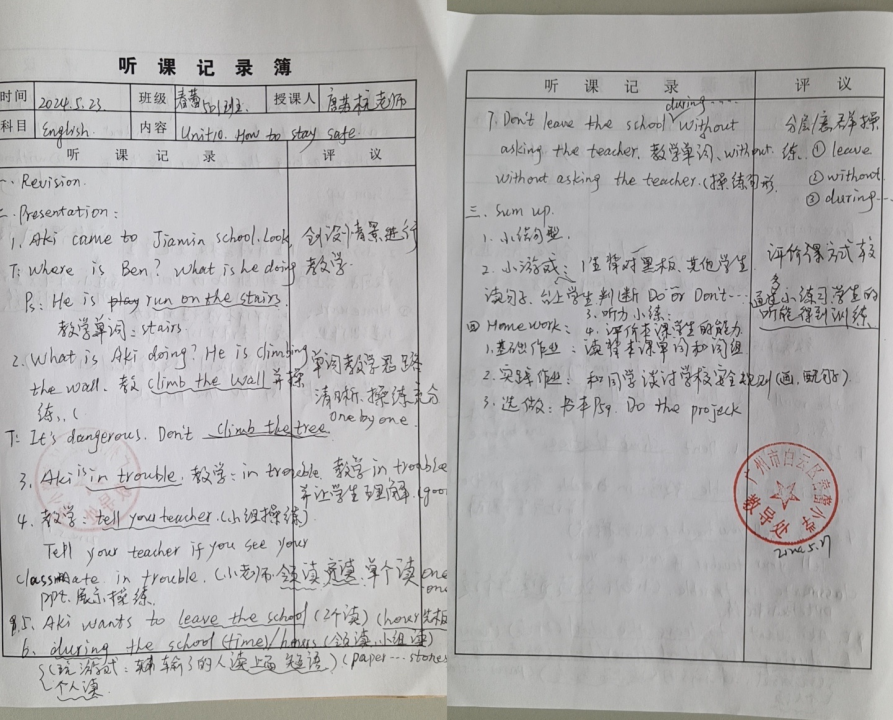 听课记录簿
时间 2024.5.23. 班级 501班 授课人 老师
科目 English. 内容 Unit10. How to stay safe.
听课记录 评议
一. Revision.
二. Presentation:
1. Aki came to Jiamin school. Look, 创设情景进行
T: Where is Ben? What is he doing 教学
Ps: He is play run on the stairs.
教学单词: stairs
2. What is Aki doing? He is climbing 单词教学思路
the wall. 教 climb the wall 并操 清晰. 操练充分
练, one by one.
T: It's dangerous. Don't climb the tree.
3. Aki is in trouble. 教学: in trouble. 教学 in trouble
并让学生理解.
4. 教学: tell your teacher. (小组操练)
Tell your teacher if you see your
classmate in trouble. (小老师领读, 单个读 one
ppt. 展示操练.
5. Aki wants to leave the school (2个读)
6. during the school (time) / hours (领读. 小组读)
(玩游戏: 输了的人读 短语) (paper... stones
个人读.
听课记录 评议
during....
7. Don't leave the school without 分层 操
asking the teacher. 教学单词, without. 练. ① leave
without asking the teacher. (操练句形 ② without
③ during...
三. Sum up.
1. 小结句型.
2. 小游戏: 1生背对黑板, 其他学生 评价课方式较多
读句子, 台上学生判断 Do or Don't... 通过小练习学生的
3. 听力小练: 听能得到训练
四 Homework: 4. 评价本课学生的能力
1. 基础作业: 读背本课单词和词组
2. 实践作业: 和同学谈讨学校安全规则 (画, 配句子)
3. 选做: 书本P59. Do the project
广州市白云区 小学
教导处